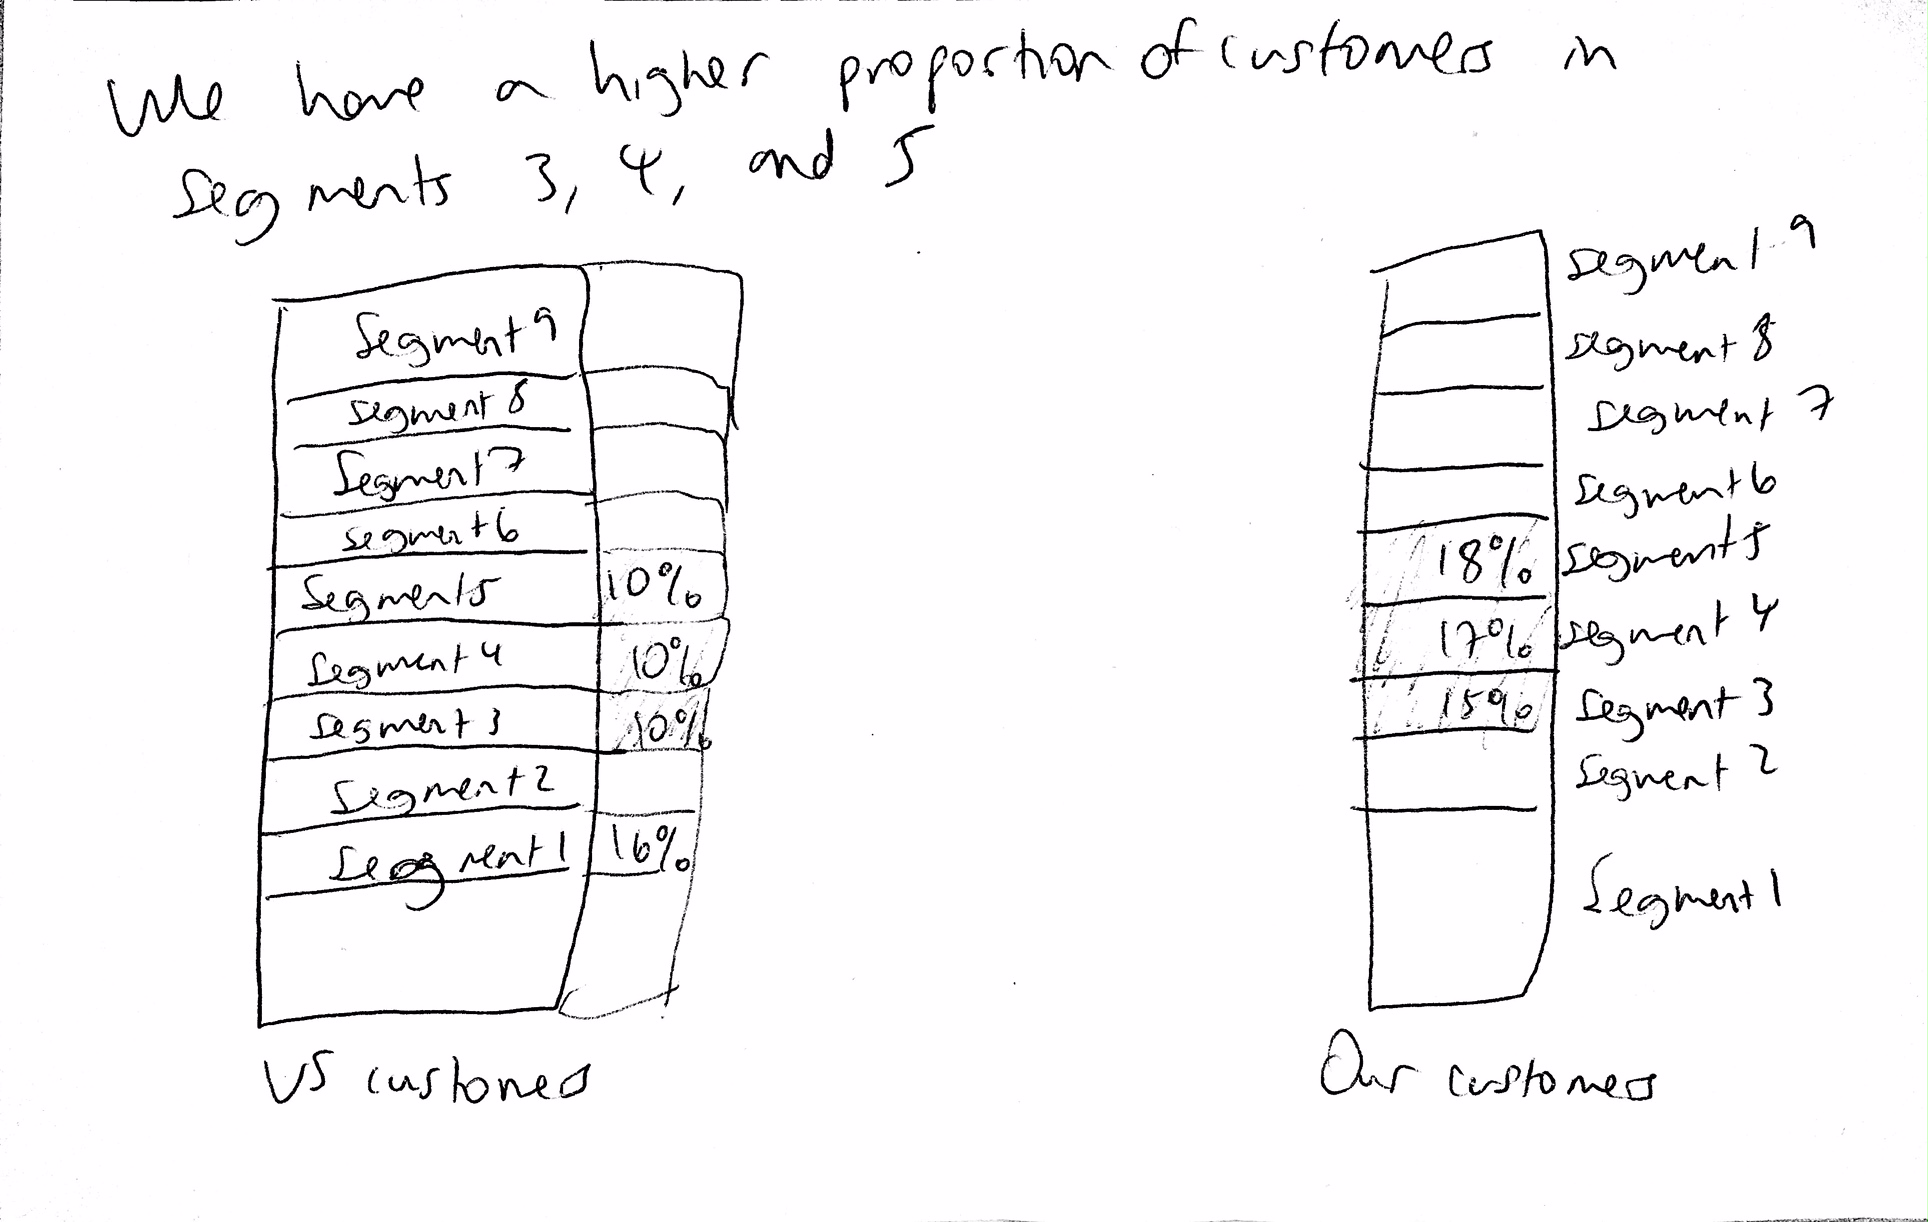 We have a higher proportion of customers in
segments 3, 4, and 5
Segment 9
Segment 8
Segment 7
Segment 6
Segment 5 10%
Segment 4 10%
Segment 3 10%
Segment 2
Segment 1 16%
US customers
Segment 9
Segment 8
Segment 7
Segment 6
18% Segment 5
17% Segment 4
15% Segment 3
Segment 2
Segment 1
Our customers